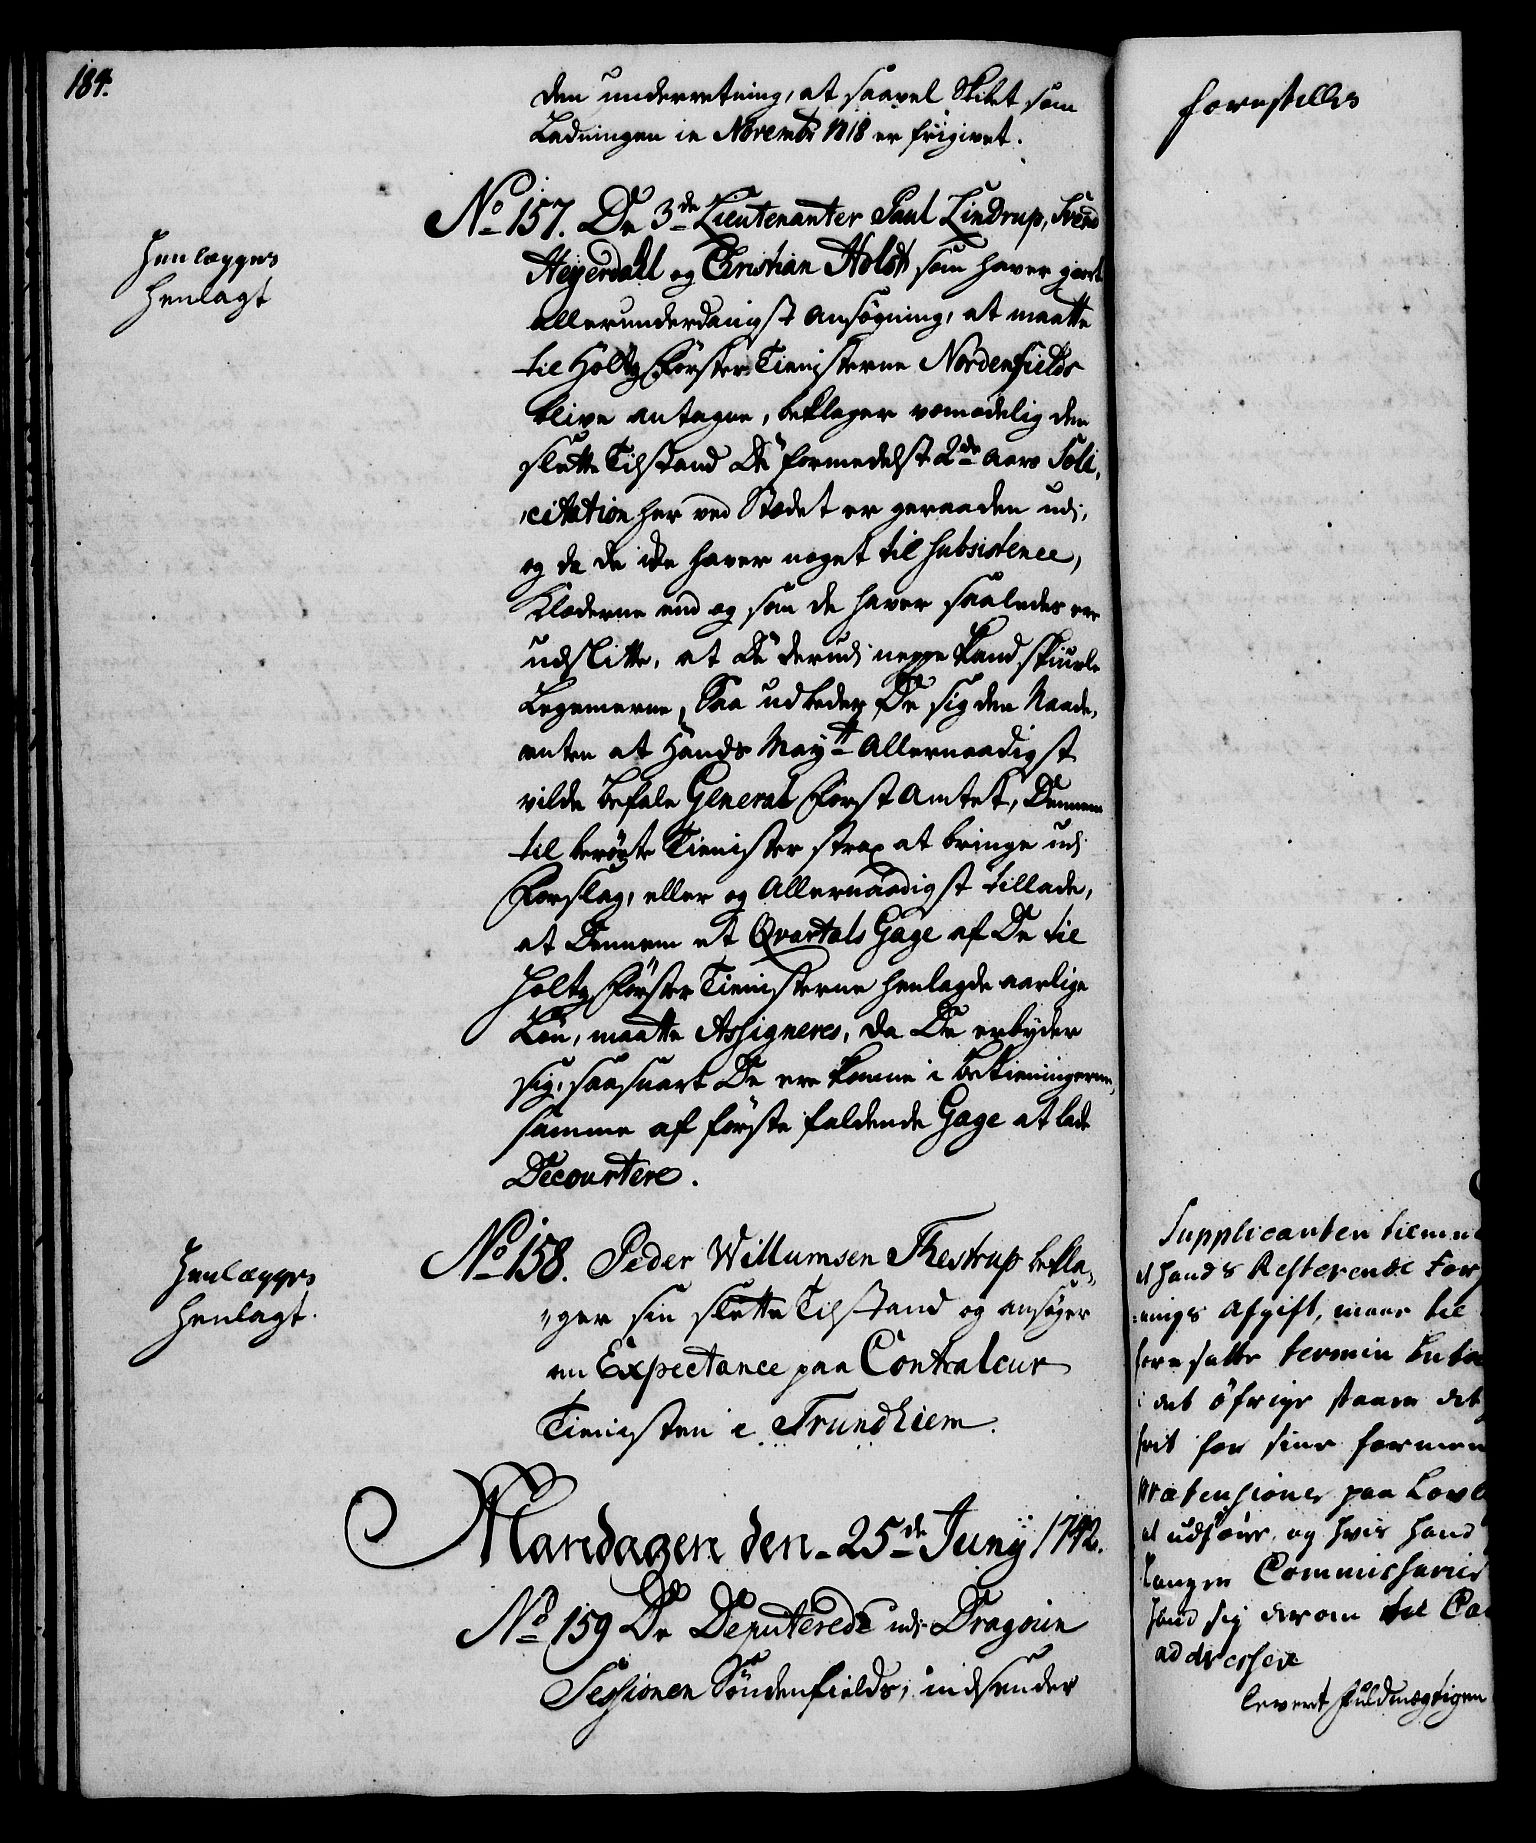 184.
den underretning, at saavel Skibet som
Ladningen in Novembr 1718 er frigivet.
Henlægges
henlagt
No 157. De 3de Lieutenanter Paul Lindrup, Svend
Heyerdahl og Christian Holst som haver giort
allerunderdanigst Ansøgning, at maatte
til Holtz Förster Tienisterne Nordenfields
blive antagne, beklager vemodelig den
slette Tilstand De formedelst 2de Aars Soli-
citation her ved Stædet er geraaden udj,
og da de icke haver noget til Subsistence,
Klæderne end og som de haver saaledes ere
udslitte, at De derudj neppe kand skiule
Legemerne, Saa udbeder De sig den Naade,
enten at Hands Maytt Allernaadigst
vilde befale General Forst Amtet, Dennem
til berørte Tienister strax at bringe udj
Forslag, eller og Allernaadigst tillade,
at Dennem et Qvartals Gage af De til
Holtz Förster Tienisterne henlagde aarlige
Løn, maatte Assigneres, da De erbyder
sig, saasnart De ere komne i Betieningerne,
samme af første faldende Gage at lade
Decourtere.
Henlægges
henlagt.
No 158. Peder Willumsen Thestrup bekla-
ger sin slette Tilstand og ansøger
em Expectance paa Contraleur
Tienisten i Trundhiem.
Mandagen den 25de Junÿ 1742.
No 159 De Deputerede udj Dragoun
Sessionen Søndenfields, indsender
forestilles
Supplicanten
at hands Resterende For
Afgift, maae til
foresatte termin
i det öfrige staaer det
frit for sine formeen
prætensioner paa
at udføre, og hvis hand
langer Commissarier
hand sig derom til Ca
addressere
leveret fuldmægtigen